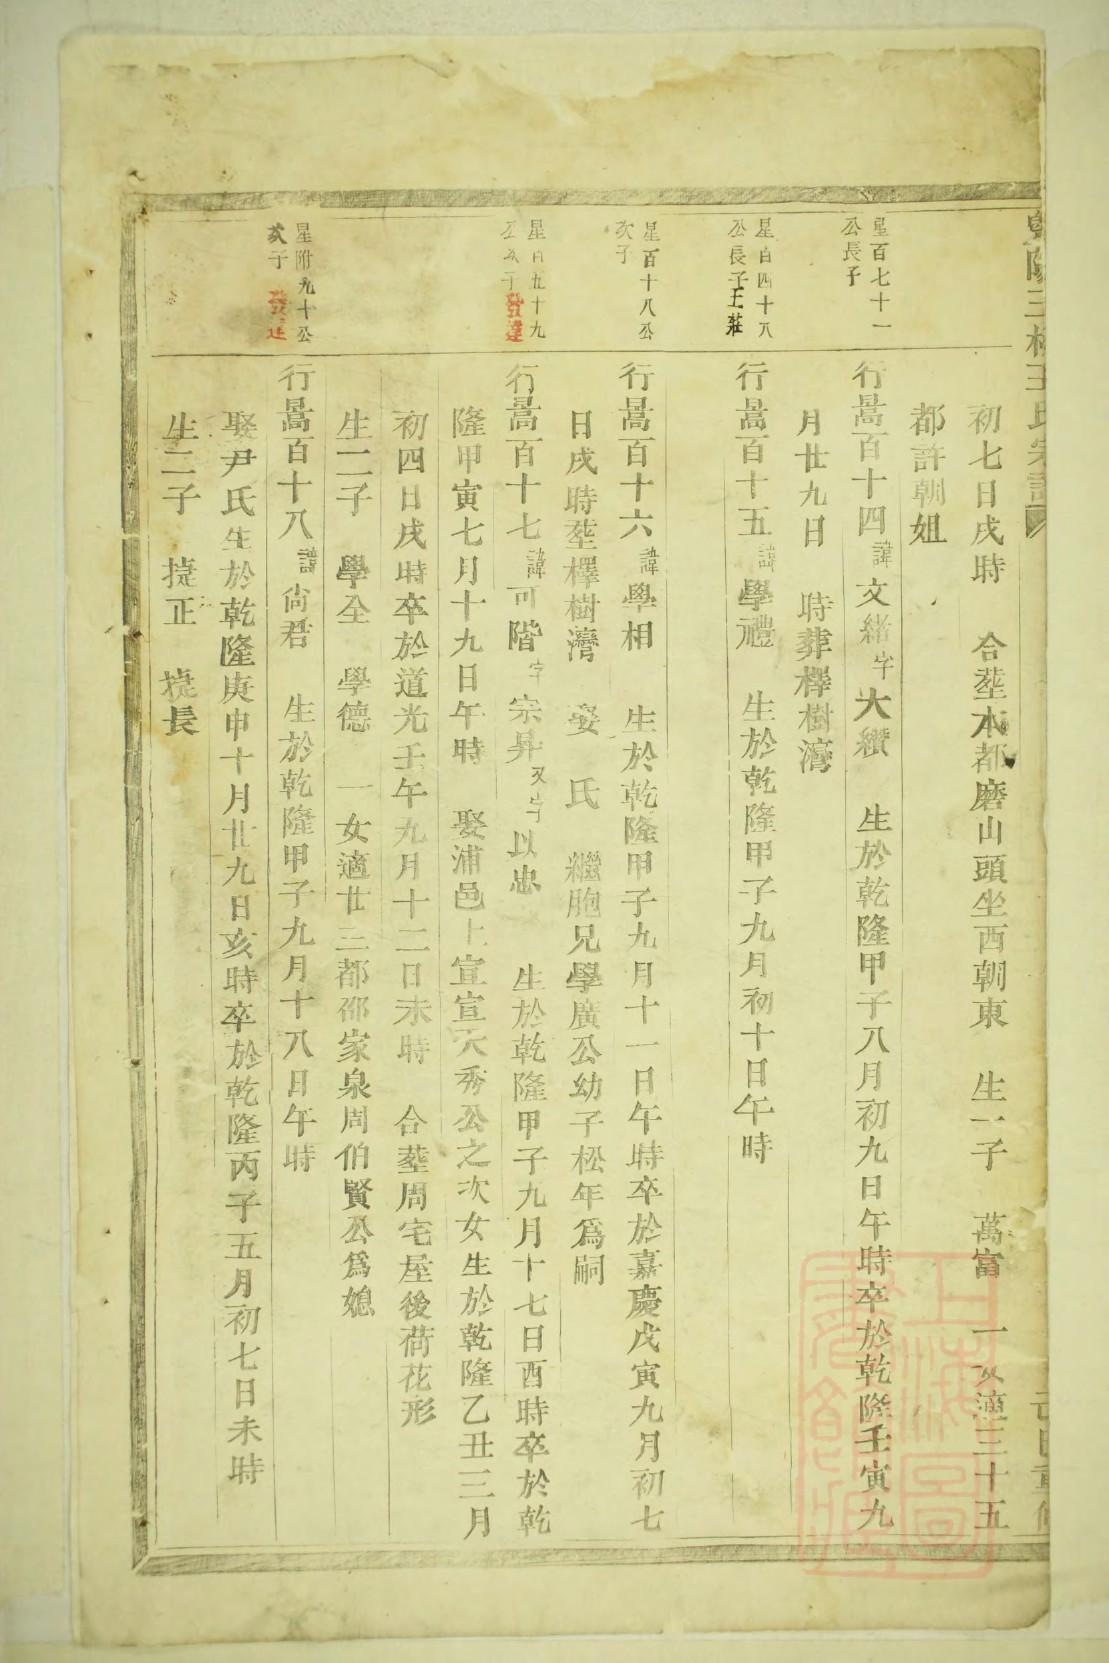 三槐王氏宗譜
初七日戌時　合塟本都磨山頭坐西朝東　生一子　萬富　一女適三十五
都許朝姐
星百七十一
公長子
行暠百十四諱文緒字大纘　生於乾隆甲子八月初九日午時卒於乾隆壬寅九
月廿九日　時葬檡樹灣
星百四十八
公長子王莊
行暠百十五諱學禮　生於乾隆甲子九月初十日午時
星百十八公
次子
行暠百十六諱學相　生於乾隆甲子九月十一日午時卒於嘉慶戊寅九月初七
日戌時塟檡樹灣　娶　氏　繼胞兄學廣公幼子松年爲嗣
星百五十九
公次子發達
行暠百十七諱可階字宗昇又字以忠　生於乾隆甲子九月十七日酉時卒於乾
隆甲寅七月十九日午時　娶浦邑上宣宣天秀公之次女生於乾隆乙丑三月
初四日戌時卒於道光壬午九月十二日未時　合塟周宅屋後荷花形
生二子　學全　學德　一女適廿三都邵家泉周伯賢公爲媳
星附九十公
次子發達
行暠百十八諱尙君　生於乾隆甲子九月十八日午時
娶尹氏生於乾隆庚申十月廿九日亥時卒於乾隆丙子五月初七日未時
生二子　㨗正　㨗長